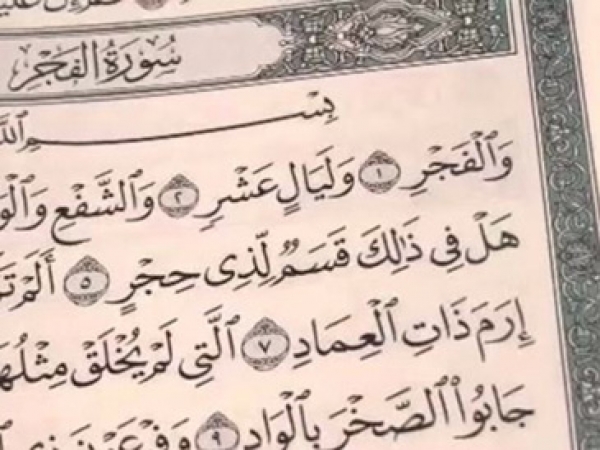 سُورَةُ الفَجْرِ
بِسْمِ اللَّهِ
وَٱلْفَجْرِ ١ وَلَيَالٍ عَشْرٍ ٢ وَٱلشَّفْعِ
هَلْ فِي ذَٰلِكَ قَسَمٌ لِّذِي حِجْرٍ ٥ أَلَمْ
إِرَمَ ذَاتِ ٱلْعِمَادِ ٧ ٱلَّتِي لَمْ يُخْلَقْ مِثْلُهَا
جَابُوا۟ ٱلصَّخْرَ بِٱلْوَادِ ٩